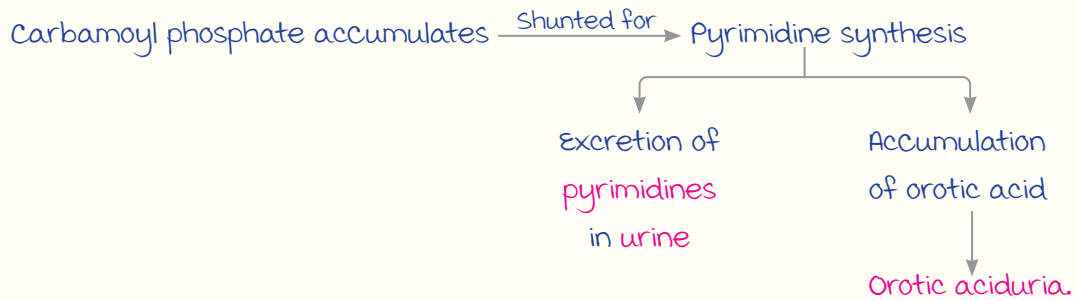 Carbamoyl phosphate accumulates Shunted for Pyrimidine synthesis
Excretion of
pyrimidines
in urine
Accumulation
of orotic acid
Orotic aciduria.